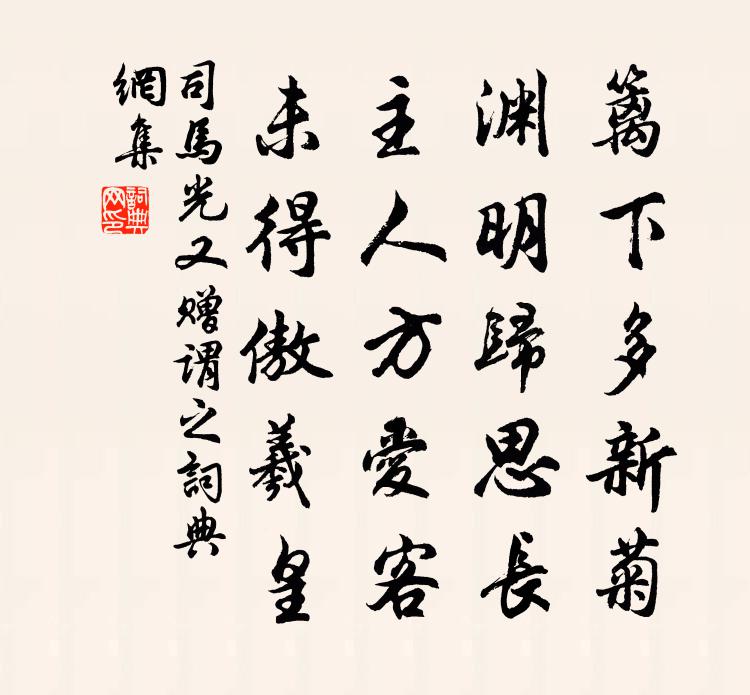 籬下多新菊
淵明歸思長
主人方愛客
未得傲羲皇
司馬光又贈謂之詞典
網集
詞典
网印